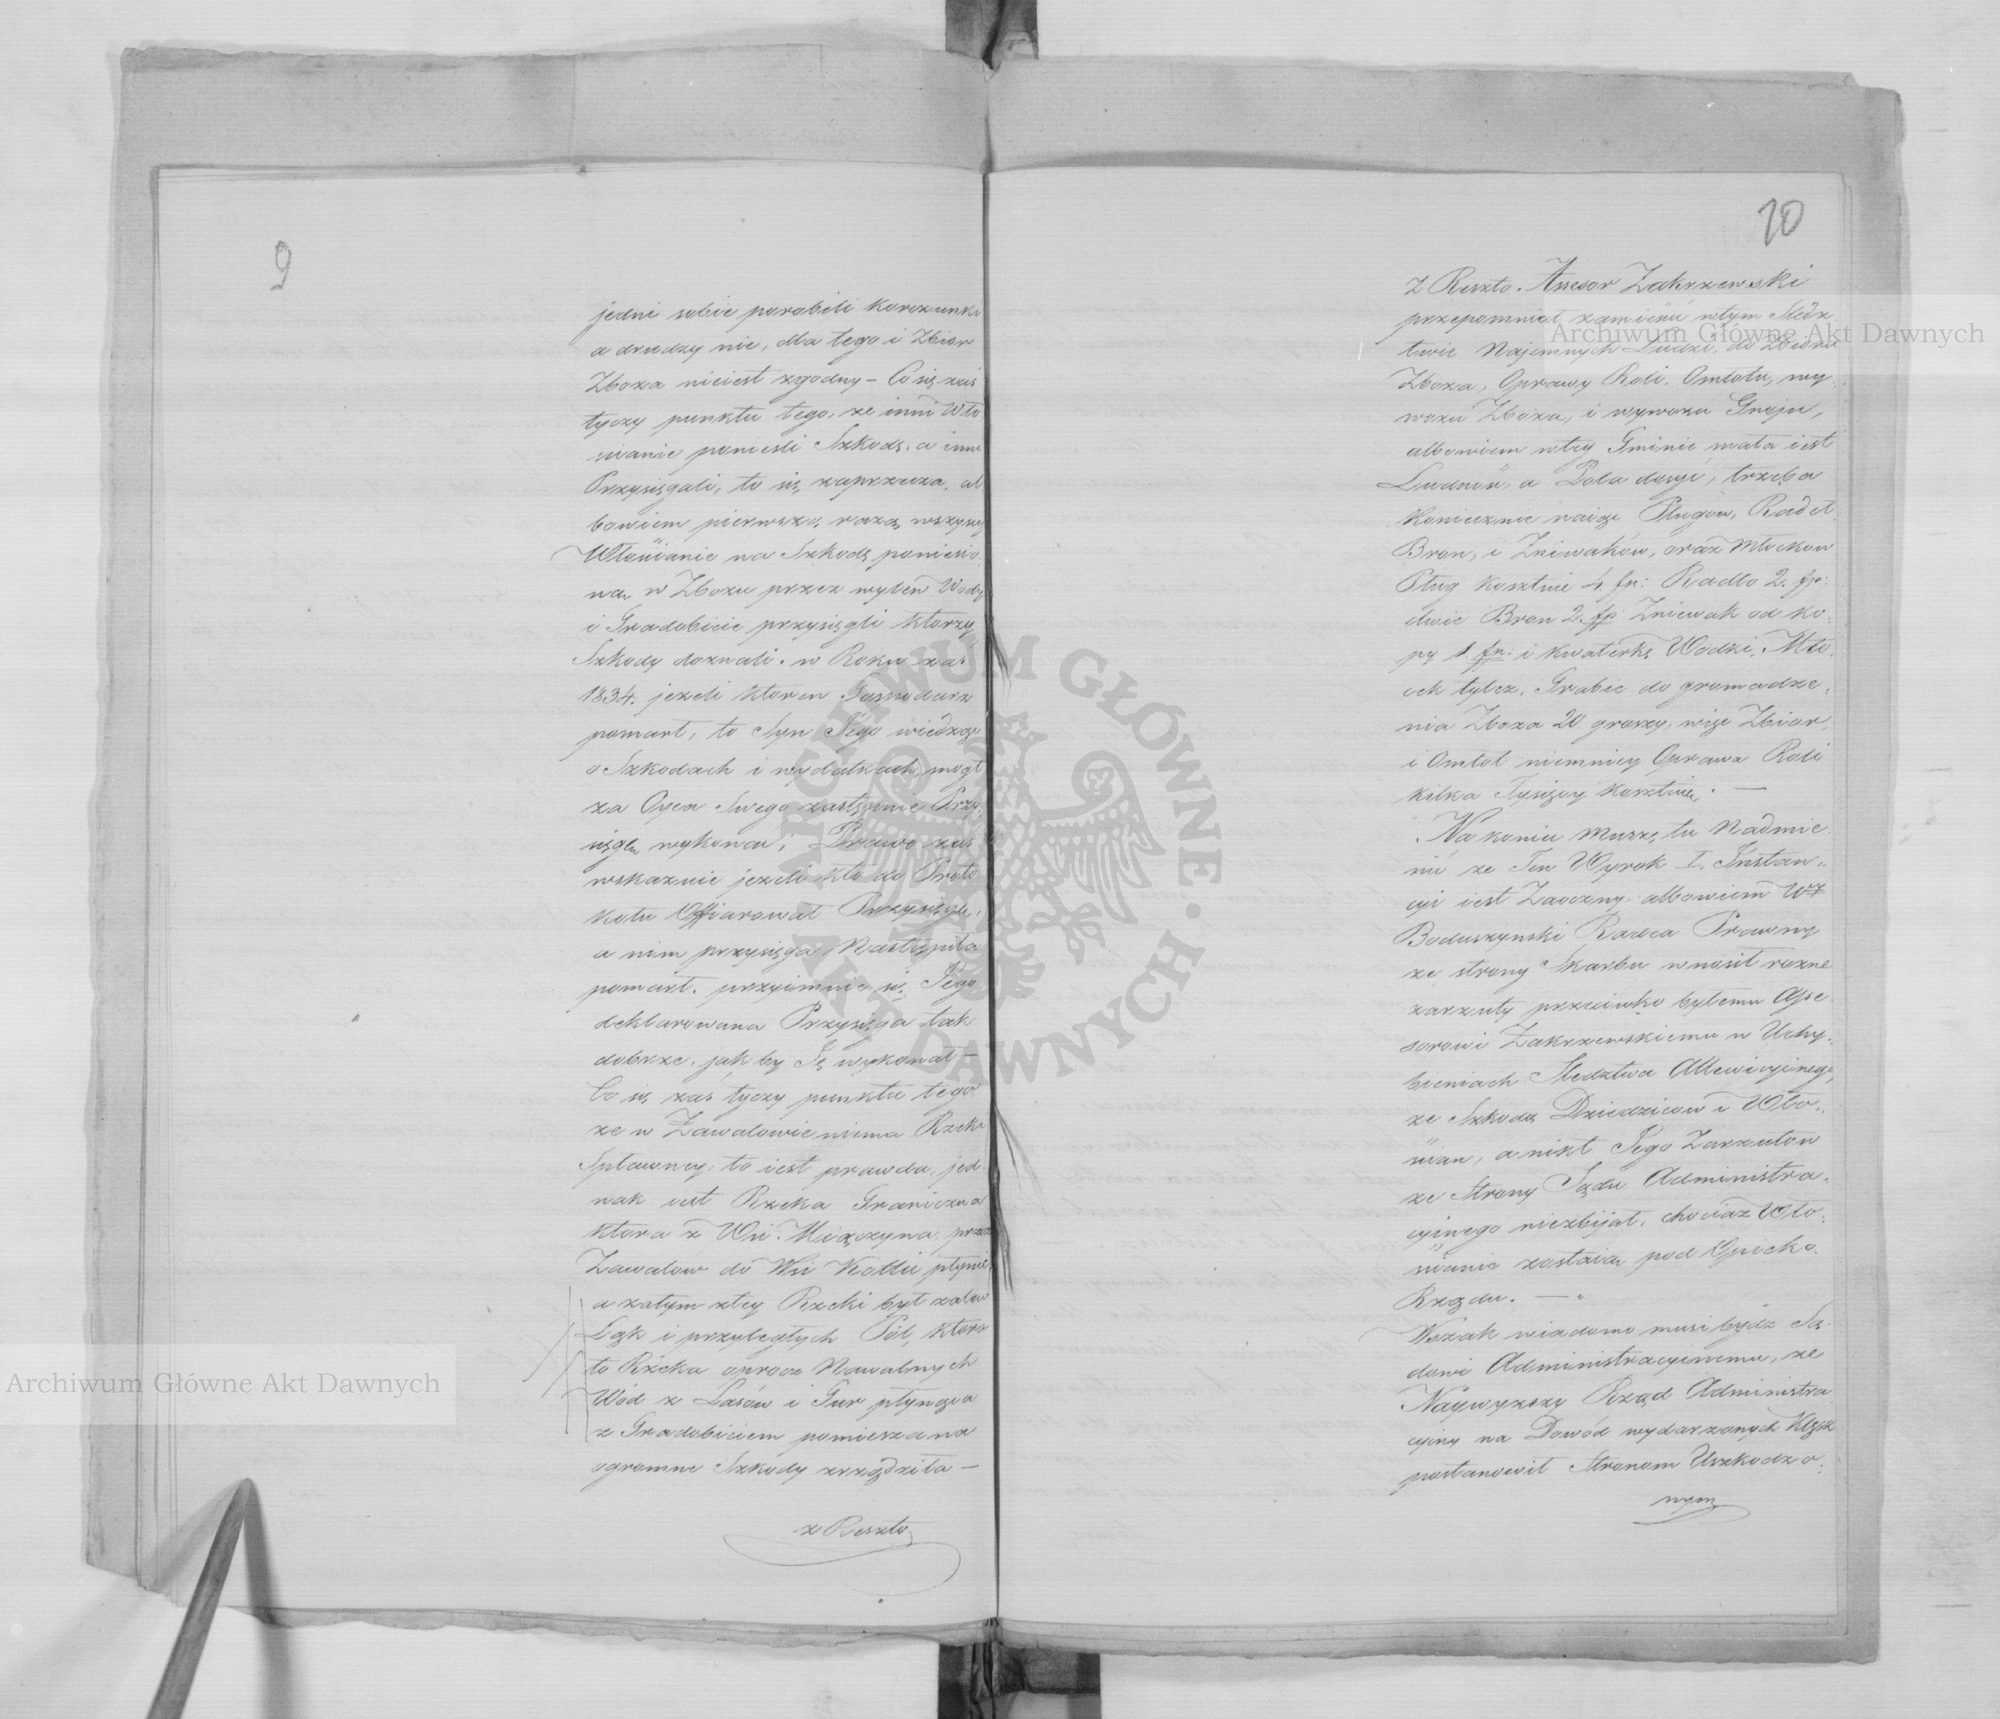 9
jedni sobie porobili karczunki
a drudzy nie, dla tego i Zbior
Zboża nieiest zgodny – Co się zaś
tyczy punktu tego, ze inni Wło
scianie poniesli Szkodę, a inne
Przysięgali, to się zaprzecza, al
bowiem pierwszą razą wszyscy
Włościanie na Szkodę poniesio
ną w Zbożu przez wylew Wody
i Gradobicie przysięgli ktorzy
Szkody doznali. w Roku zaś
1834. jeżeli ktoren Gospodarz
pomarł, to Syn Jego wiedząc
o Szkodach i wydatkach, mogł
za Oyca Swego zastępnie Przy
sięgę wykonać; Prawo zaś
wskazuie jezeli kto do Proto
kołu Offiarował Przysięgę,
a nim przysięga Nastąpiła
pomarł, przyimuie się Jego
deklarowana Przysięga tak
dobrze, jak by Ją wykonał –
Co się zaś tyczy punktu tego
ze w Zawalowie niema Rzeki
Spławney, to iest prawda, jed
nak iest Rzeka Graniczna
ktora z Wsi Miączyna, przez
Zawalow do Wsi Kotlic płynie,
a zatym ztey Rzeki był zalew
Łąk i przyległych Pól, ktora
to Rzeka oprocz Nawalnych
Wód z Lasów i Gur płynąca
z Gradobiciem pomieszana
ogromne Szkody zrządziła –
z Reszto
10
z Reszto. Assesor Zakrzewski
przepomniał zamienić wtym Sledz
twie Najemnych Ludzi, do Zbioru
Zboza, Oprawy Roli, Omłotu, wy
wozu Zboza, i wywozu Gnoju,
albowiem wtey Gminie mała iest
Ludność, a Pola dosyć, trzeba
koniecznie naiąć Pługów, Radeł
Bron, i Zniwaków, oraz Młockow
Pług kosztuie 4. fp: Radło 2. fp:
dwie Bron 2. fp. Zniewak od ko
py 1. fp: i kwaterkę Wodki, Mło
cek tylez, Grabie do gromadze
nia Zboza 20 groszy, więc Zbior
i Omłot niemniey Oprawa Roli
kilka Tysięcy kosztuie. –
Na koniec muszę tu Nadmie
nić ze Ten Wyrok I. Instan
cyi iest Zaoczny, albowiem WJ
Boduszynski Radca Prawny
ze strony Skarbu wnosił rozne
zarzuty przeciwko byłemu Asse
sorowi Zakrzewskiemu w Uchy
bieniach Sledztwa Allewiacyinego,
ze Szkodą Dziedziców i Wło
scian, a nikt Jego Zarzutow
ze Strony Sądu Administra
cyinego niezbijał, chociaz Wło
scianie zostaią pod Opieką
Rządu. –
Wszak wiadomo musi bydz Są
dowi Administracyinemu, ze
Naywyzszy Rząd Administra
cyiny na Dowód wydarzonych Klęsk
postanowił Stronom Uszkodzo
nym
Archiwum Główne Akt Dawnych
Archiwum Główne Akt Dawnych
ARCHIWUM GŁÓWNE AKT DAWNYCH